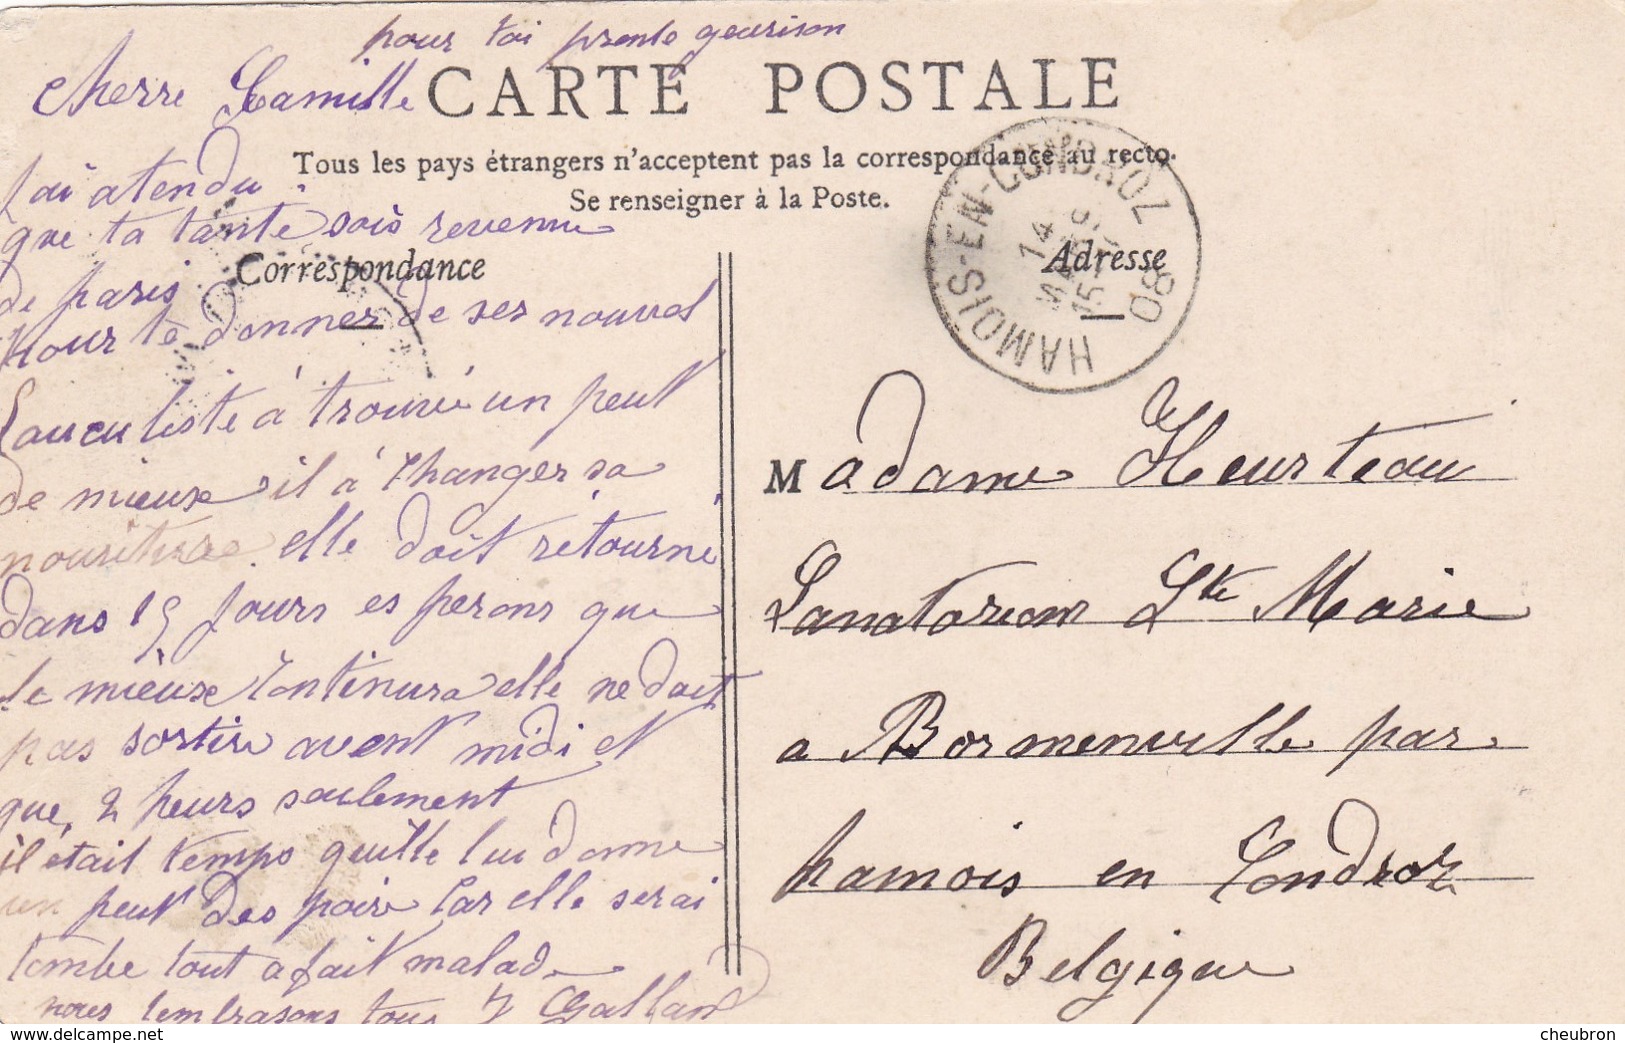 pour toi pronto geurison
Cherre Camille
CARTE POSTALE
Tous les pays étrangers n'acceptent pas la correspondance au recto.
Se renseigner à la Poste.
Correspondance
Adresse
HAMOIS-EN-CONDROZ
14
15
08
j'ai atendu
que ta tante sois revenue
de paris
pour te donner de ses nouvel
l'auculiste à trouvé un peut
de mieuse il à changer sa
nouriture elle doit retourné
dans 15 jours es perons que
le mieuse continura elle ne doit
pas sortire avent midi et
que 2 heurs seulement
il etait temps quille lui donne
un peut des poire car elle serai
tombe tout a fait malad
nous t'embrasons tous J Gallan
Madame Heurteau
Sanatorium Ste Marie
a Bormenville par
hamois en Condroz
Belgique
cheubron.com